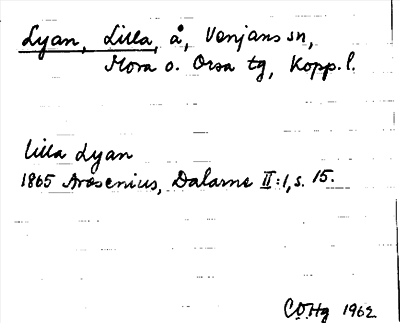 Lyan, Lilla, å, Venjans sn,
Mora o. Orsa tg, Kopp. l.
Lilla Lyan
1865 Arosenius, Dalarne II:1, s. 15.
1962